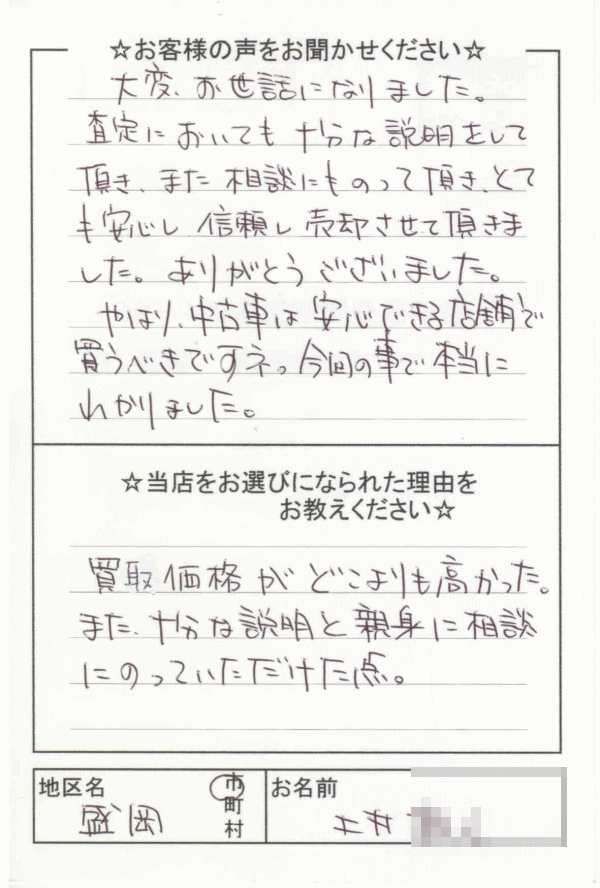 ☆お客様の声をお聞かせください☆
大変、お世話になりました。
査定においても十分な説明をして
頂き、また相談にものって頂き、とて
も安心し信頼し売却させて頂きま
した。ありがとうございました。
やはり、中古車は安心できる店舗で
買うべきですネ。今回の事で本当に
わかりました。
☆当店をお選びになられた理由を
お教えください☆
買取価格がどこよりも高かった。
また、十分な説明と親身に相談
にのっていただけた点。
地区名 盛岡 市町村 お名前